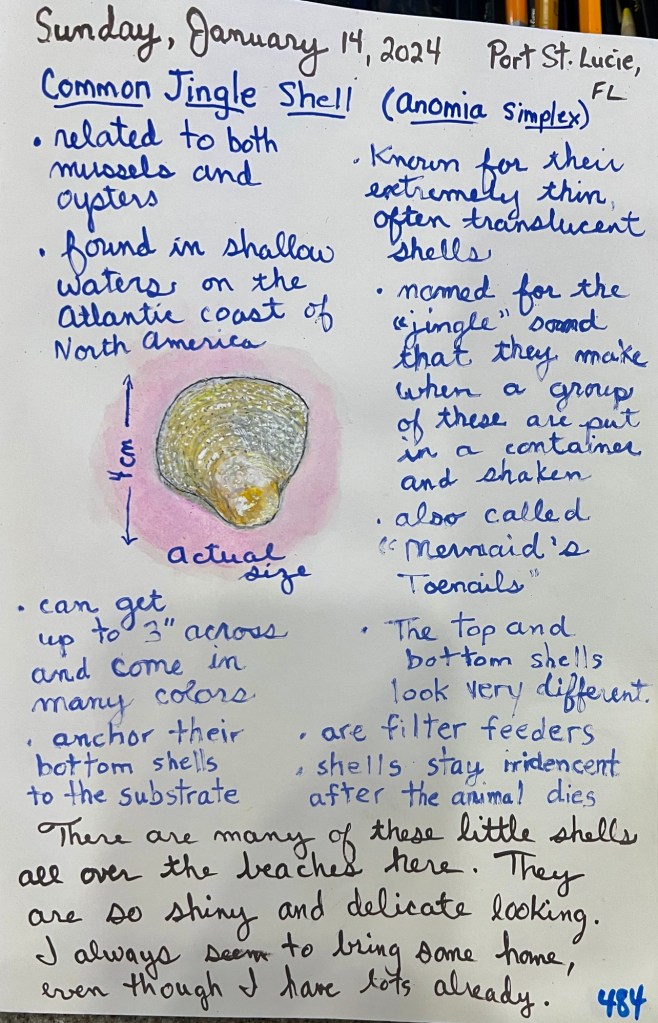 Sunday, January 14, 2024 Port St. Lucie, FL
Common Jingle Shell (anomia simplex)
• related to both
mussels and
oysters
• found in shallow
waters on the
Atlantic coast of
North America
4 cm
actual
size
• can get
up to 3" across
and come in
many colors
• anchor their
bottom shells
to the substrate
• Known for their
extremely thin,
often translucent
shells
• named for the
"jingle" sound
that they make
when a group
of these are put
in a container
and shaken
• also called
"Mermaid's
Toenails"
• The top and
bottom shells
look very different.
• are filter feeders
• shells stay irridencent
after the animal dies
There are many of these little shells
all over the beaches here. They
are so shiny and delicate looking.
I always seem to bring some home,
even though I have lots already.
484